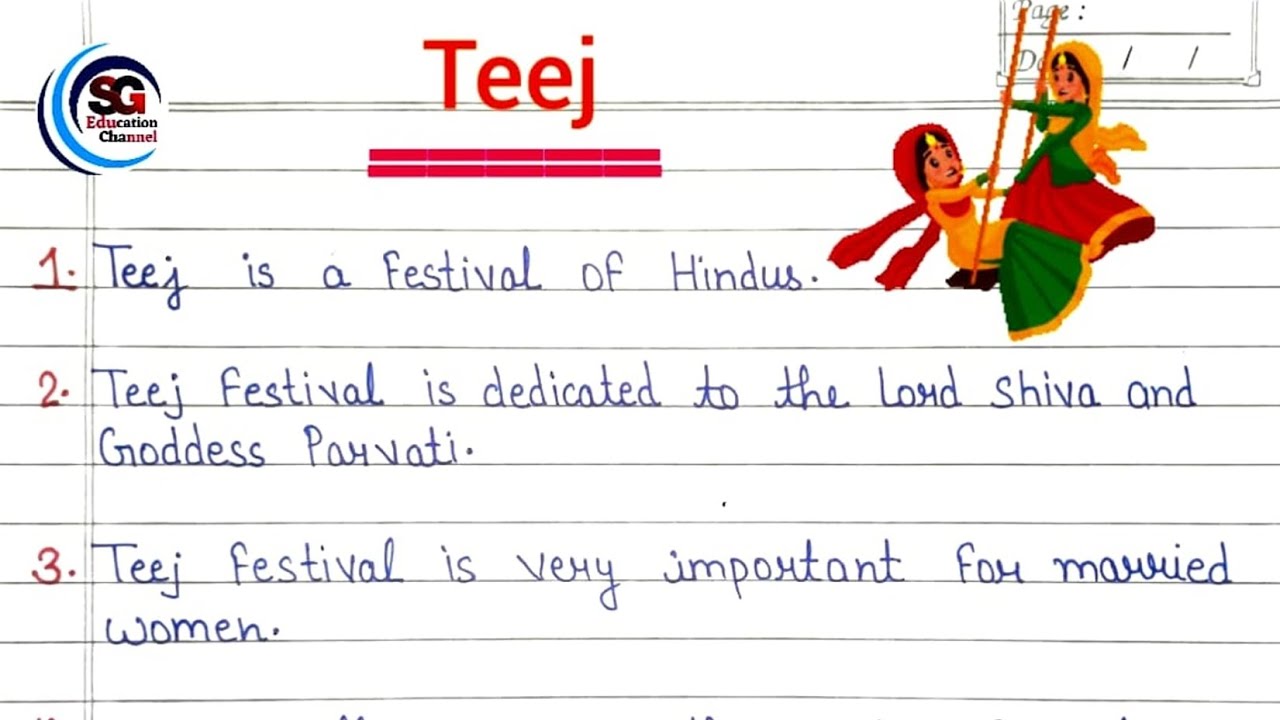 Page :
SG
Education
Channel
Teej
/ /
1. Teej is a festival of Hindus.
2. Teej festival is dedicated to the Lord Shiva and
Goddess Parvati.
3. Teej festival is very important for married
women.